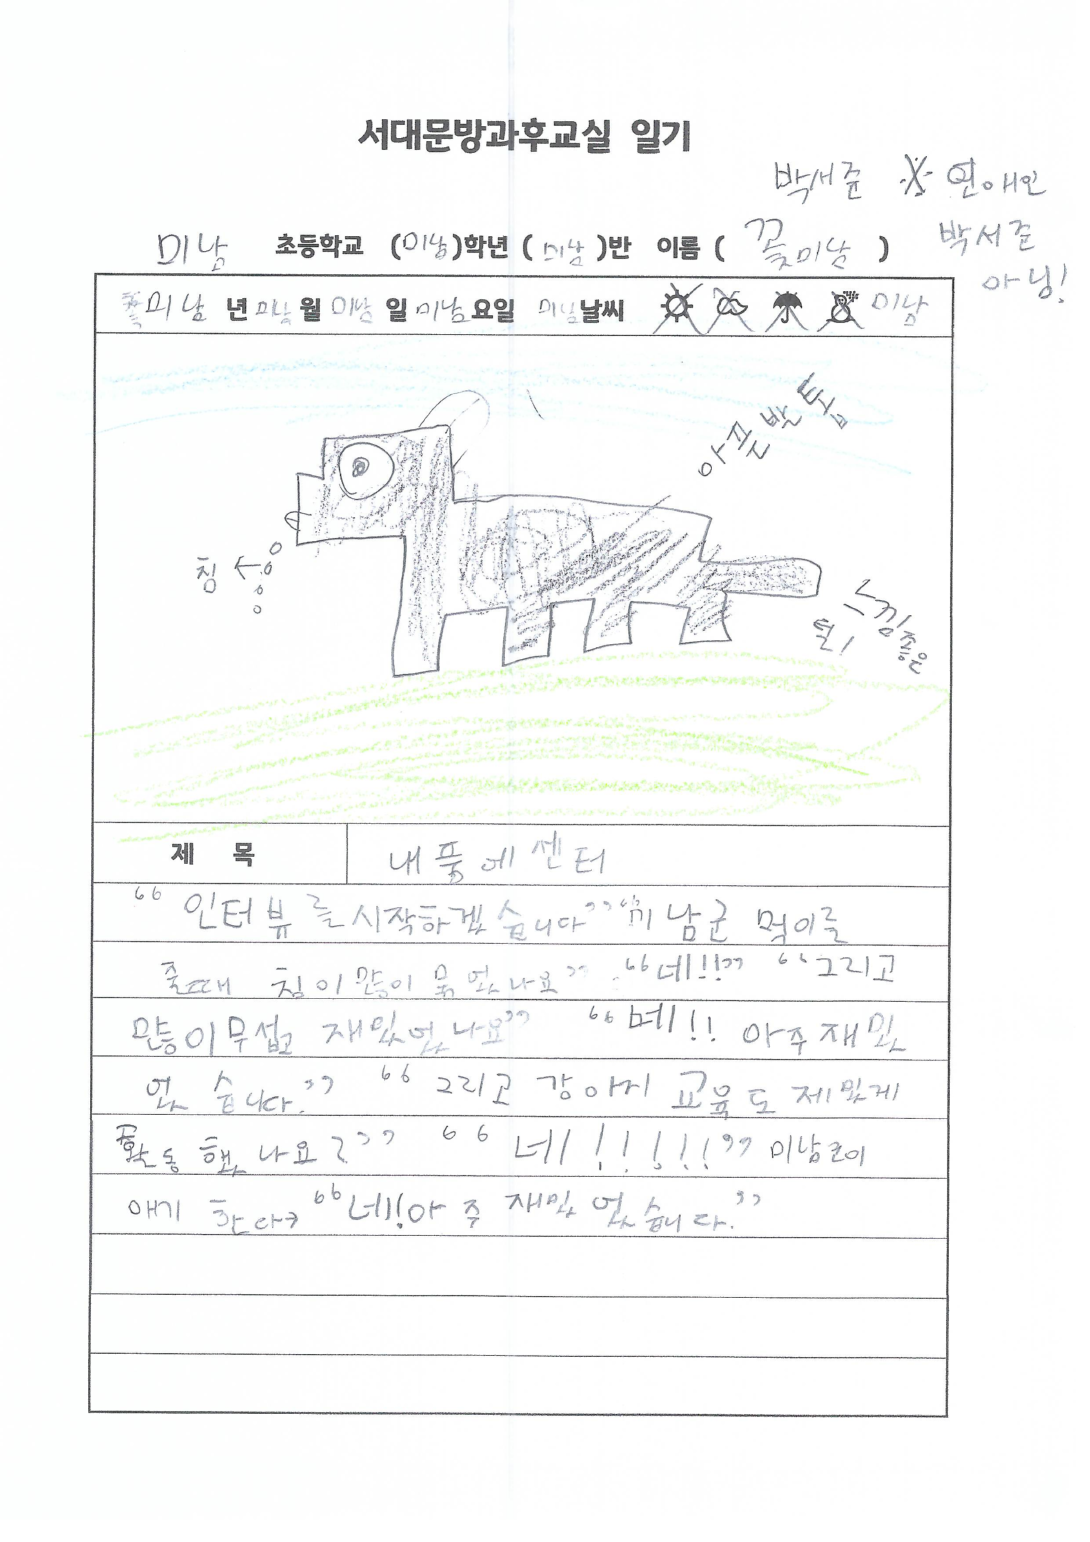 서대문방과후교실 일기
박서준 ※ 연애인
박서준
아닝!
미남 초등학교 (미남)학년 (미남)반 이름 (꽃미남)
꽃미남 년 미남 월 미남 일 미남 요일 미남 날씨 미남
아픈 반점
침 ←
느낌좋은
털!
제 목 내품에센터
“인터뷰를시작하겠습니다” “미남군 먹이를
줄때 침이많이 묽었나요” “네!!” “그리고
많이무섭고 재밌었나요” “네!! 아주재밌
었습니다.” “그리고 강아지 교육도 제밌게
활동 했나요?” “네!!!!!!” 미남군이
얘기 한다 “네!아주 재밌었습니다.”